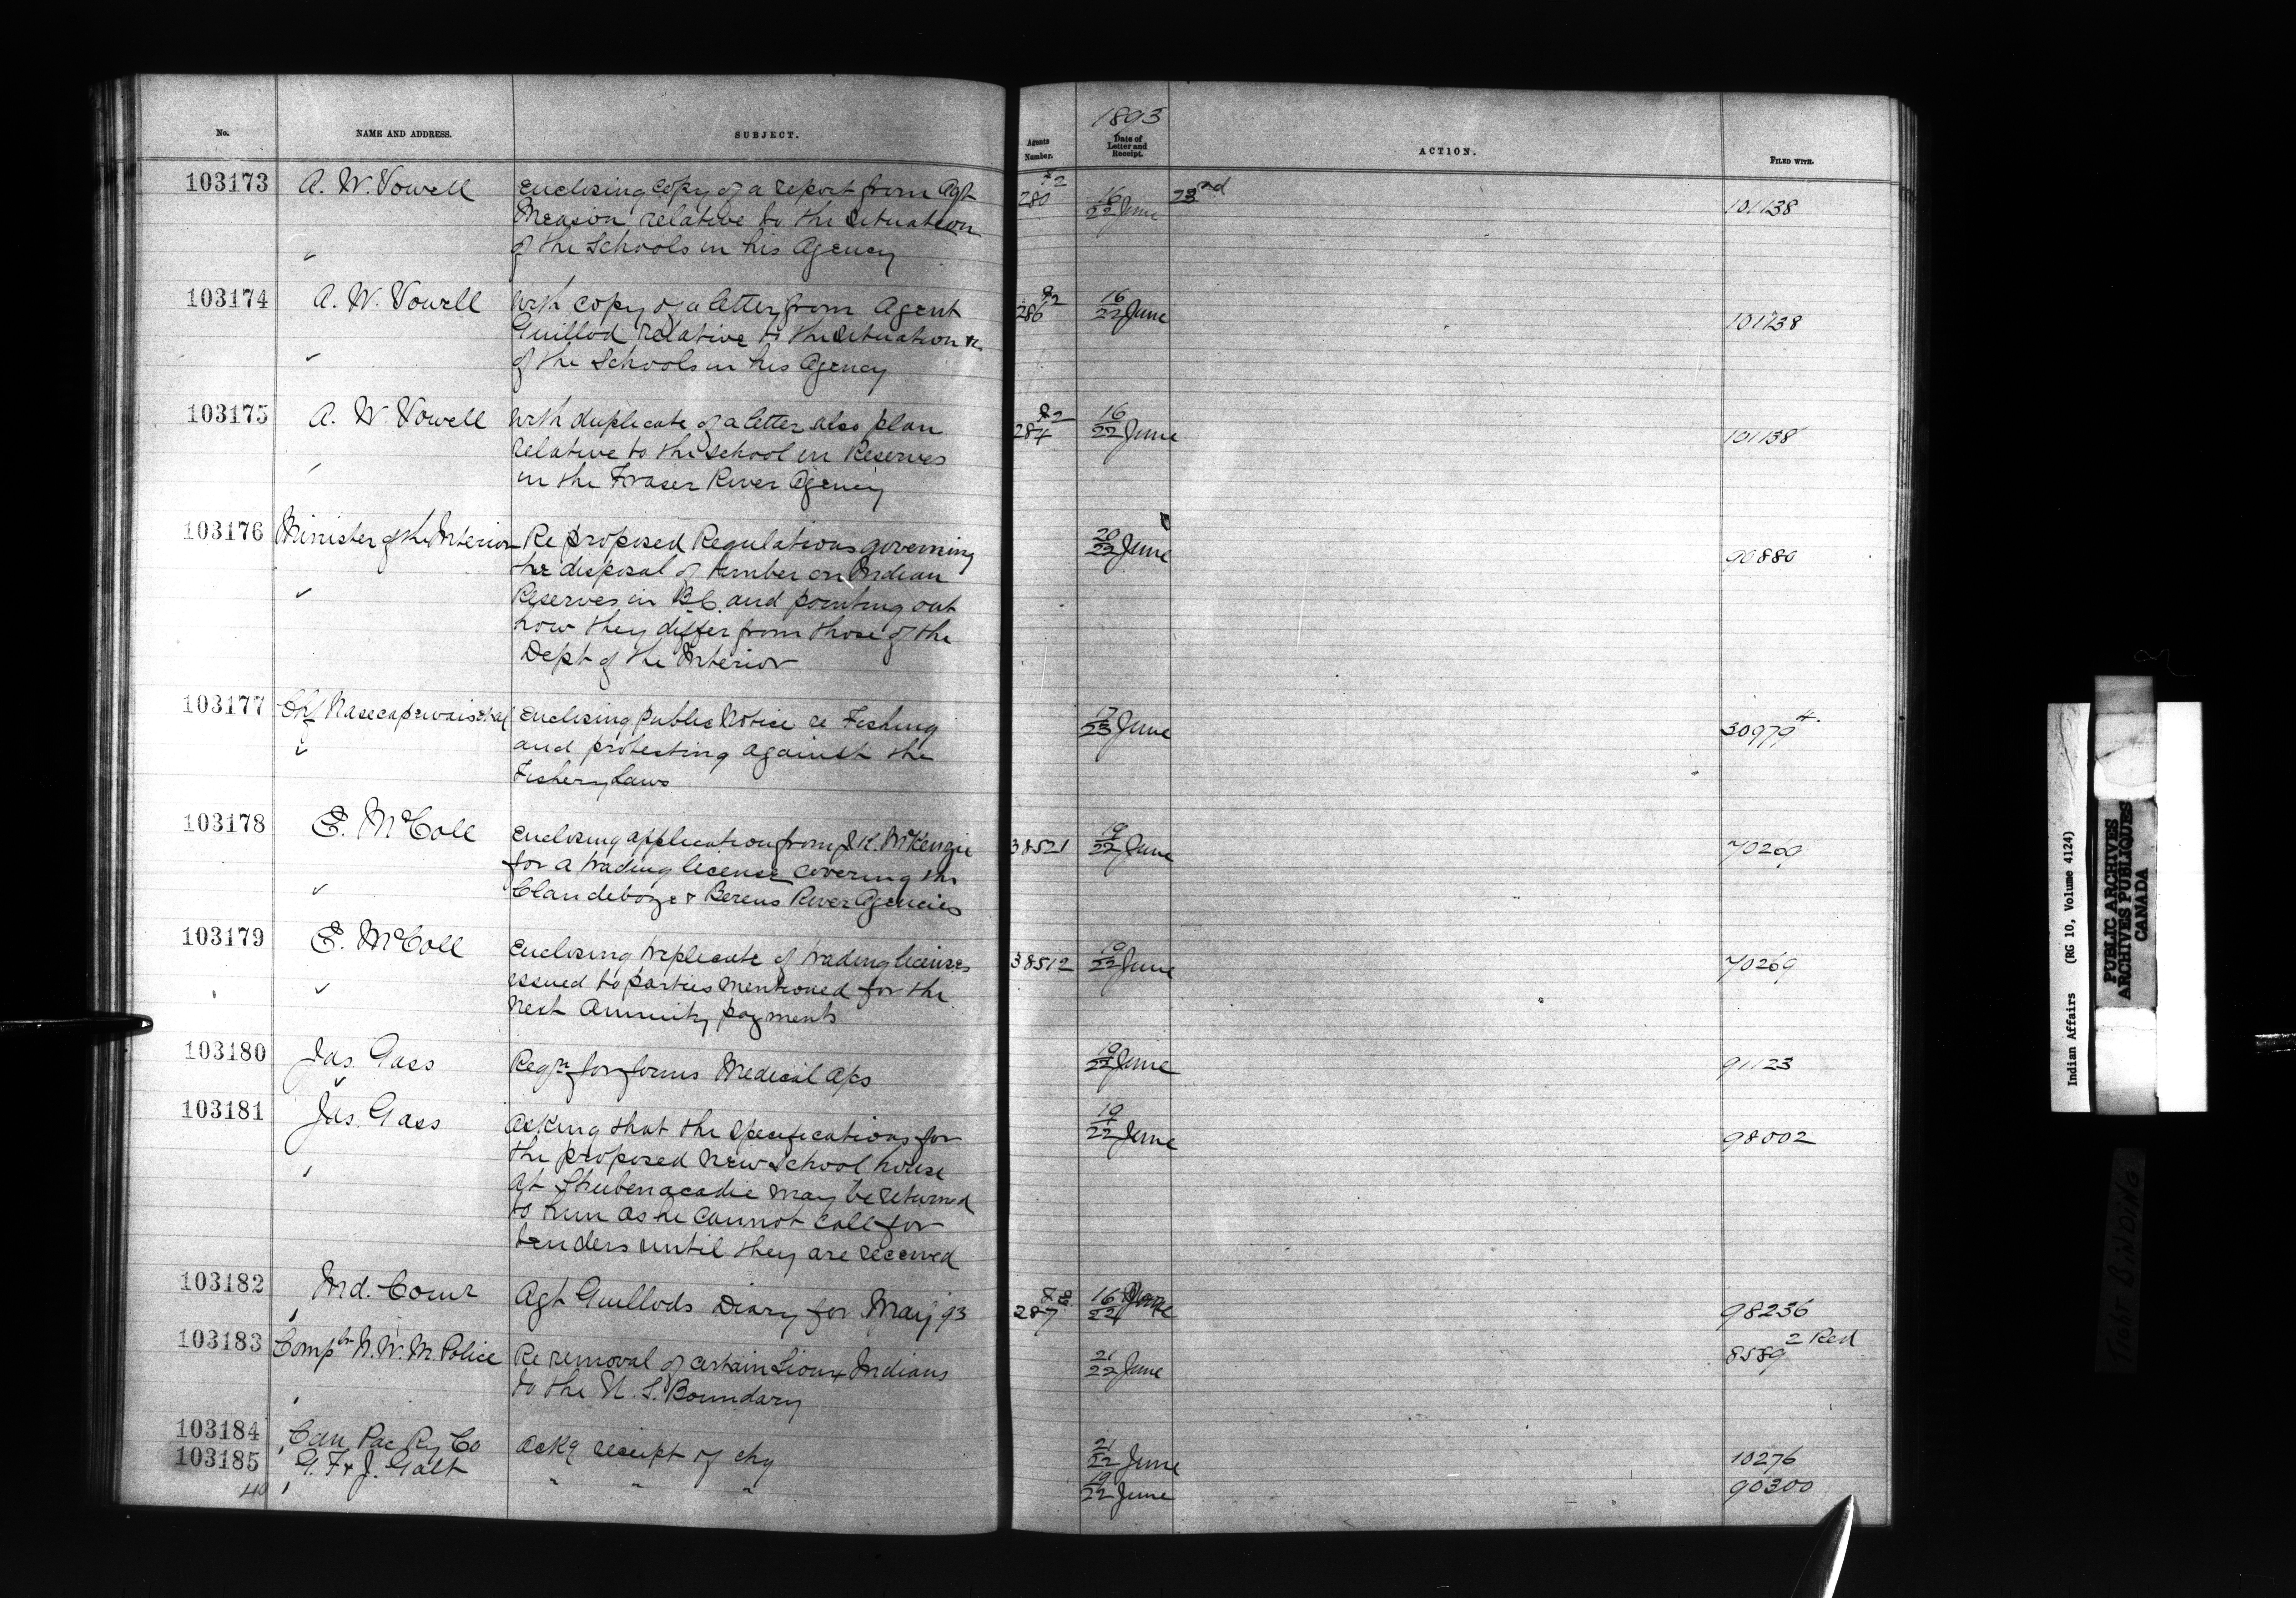 No.
NAME AND ADDRESS.
SUBJECT.
Agents Number.
1893
Date of Letter and Receipt.
ACTION.
FILED WITH.
103173 A. W. Vowell Enclosing copy of a report from Agt 280 16/22 June 23rd 101138
Meason relative to the situation
of the Schools in his Agency
103174 A. W. Vowell With copy of a letter from Agent 286 16/22 June 101138
Guillod relative to the situation
of the Schools in his Agency
103175 A. W. Vowell With duplicate of a letter also plan 284 16/22 June 101138
relative to the School on Reserves
in the Fraser River Agency
103176 Minister of the Interior Re proposed Regulations governing 20/22 June 90880
the disposal of timber on Indian
Reserves in B.C. and pointing out
how they differ from those of the
Dept of the Interior
103177 Chf Enclosing Public Notice re Fishing 17/23 June 30979 4.
and protesting against the
Fishery Laws
103178 E. McColl Enclosing application from McKenzie 38521 19/22 June 70269
for a trading license covering the
Clandeboye & Berens River Agencies
103179 E. McColl Enclosing triplicate of trading licenses 38512 19/22 June 70269
issued to parties mentioned for the
next annuity payments
103180 Jas. Gass Reqn for forms Medical Aps 19/22 June 91123
103181 Jas. Gass Asking that the specifications for 19/22 June 98002
the proposed new School house
at Shubenacadie may be returned
to him as he cannot call for
tenders until they are received
103182 Ind. Comr Agt Guillods Diary for May 93 287 16/22 June 98236
103183 Comptr N. W. M. Police Re removal of certain Sioux Indians 21/22 June 8589 2 Red
to the U. S. Boundary
103184 Can Pac Ry Co Ackg receipt of chq 21/22 June 10276
103185 G. F & J. Galt " " " 19/22 June 90300
40
Indian Affairs (RG 10, Volume 4124)
PUBLIC ARCHIVES
ARCHIVES PUBLIQUES
CANADA
TIGHT BINDING